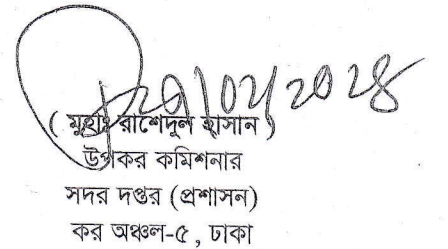 ( মুহাঃ রাশেদুল হাসান )
উপকর কমিশনার
সদর দপ্তর (প্রশাসন)
কর অঞ্চল-৫, ঢাকা